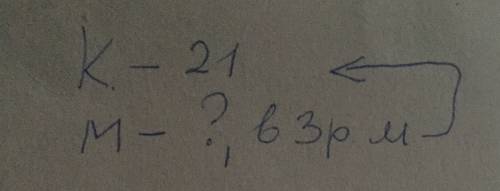 К. – 21
М – ?, в 3 р. м